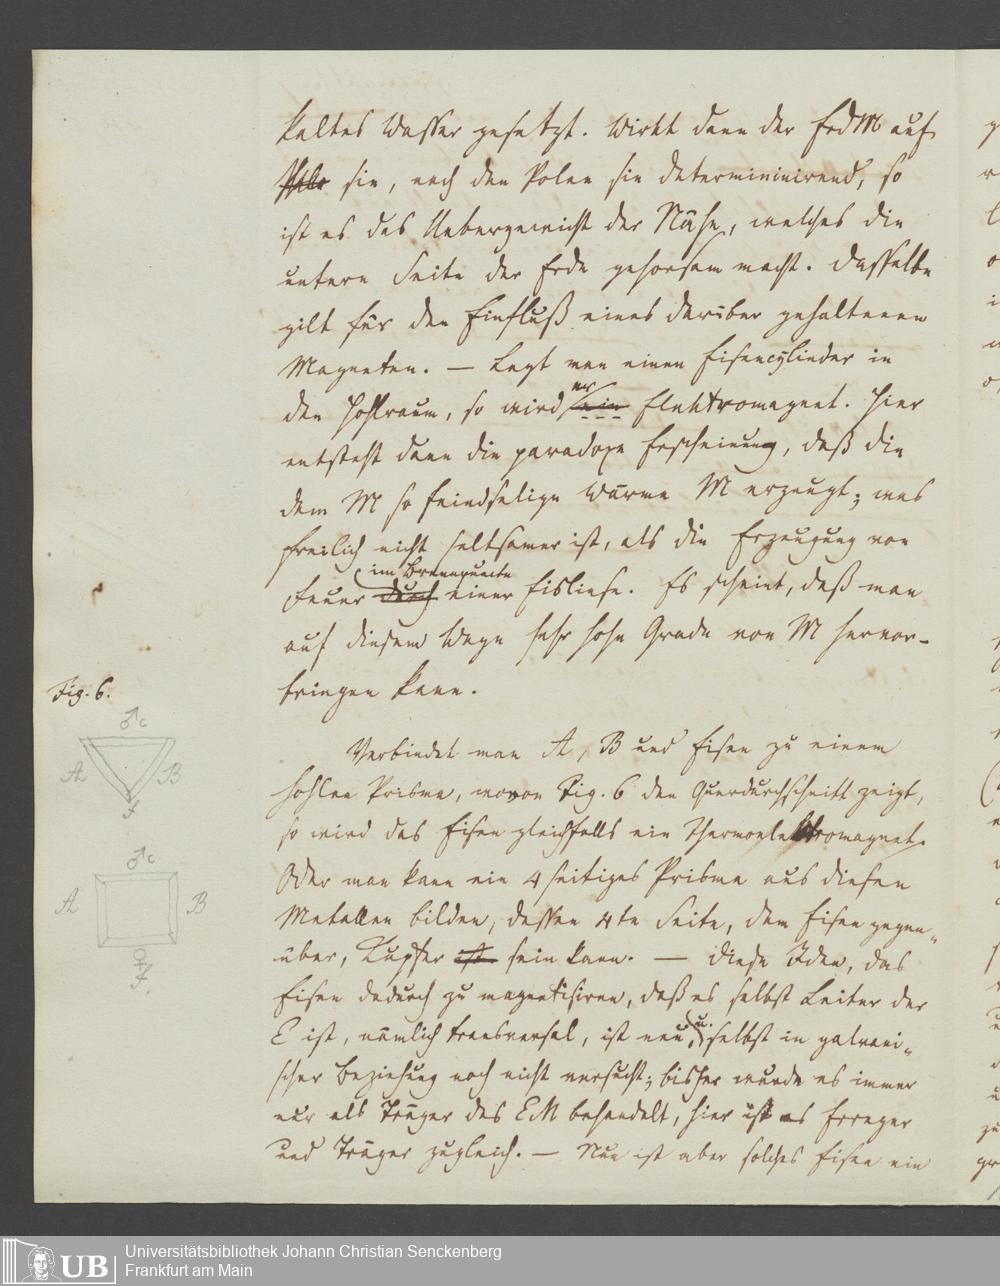 kaltes Wasser gesetzt. Wirkt dann der ErdM auf
sie, nach den Polen sie determininirend, so
ist es das Uebergewicht der Nähe, welches die
untere Seite der Erde gehorsam macht. Dasselbe
gilt für den Einfluß eines darüber gehaltenen
Magneten. — Legt man einen Eisencylinder in
den Hohlraum, so wird er Elektromagnet. Hier
entsteht dann die paradoxe Erscheinung, daß die
dem M so feindselige Wärme M erzeugt; was
freilich nicht seltsamer ist, als die Erzeugung von
im Brennpuncte
Feuer durch einer Eislinse. Es scheint, daß man
auf diesem Wege sehr hohe Grade von M hervor-
bringen kann.
Fig. 6.
♂ c
A B
f
♂ c
A B
♀
f.
Verbindet man A, B und Eisen zu einem
hohlen Prisma, wovon Fig. 6 den Querdurchschnitt zeigt,
so wird das Eisen gleichfalls ein Thermoelektromagnet.
Oder man kann ein 4seitiges Prisma aus diesen
Metallen bilden, dessen 4te Seite, dem Eisen gegen-
über, Kupfer ist sein kann. — Diese Idee, das
Eisen dadurch zu magnetisiren, daß es selbst Leiter der
E ist, nämlich transversal, ist neu, u. selbst in galvani-
scher Beziehung noch nicht versucht; bisher wurde es immer
nur als Träger des EM behandelt, hier ist es Erreger
und Träger zugleich. — Nun ist aber solches Eisen ein
UB
Universitätsbibliothek Johann Christian Senckenberg
Frankfurt am Main